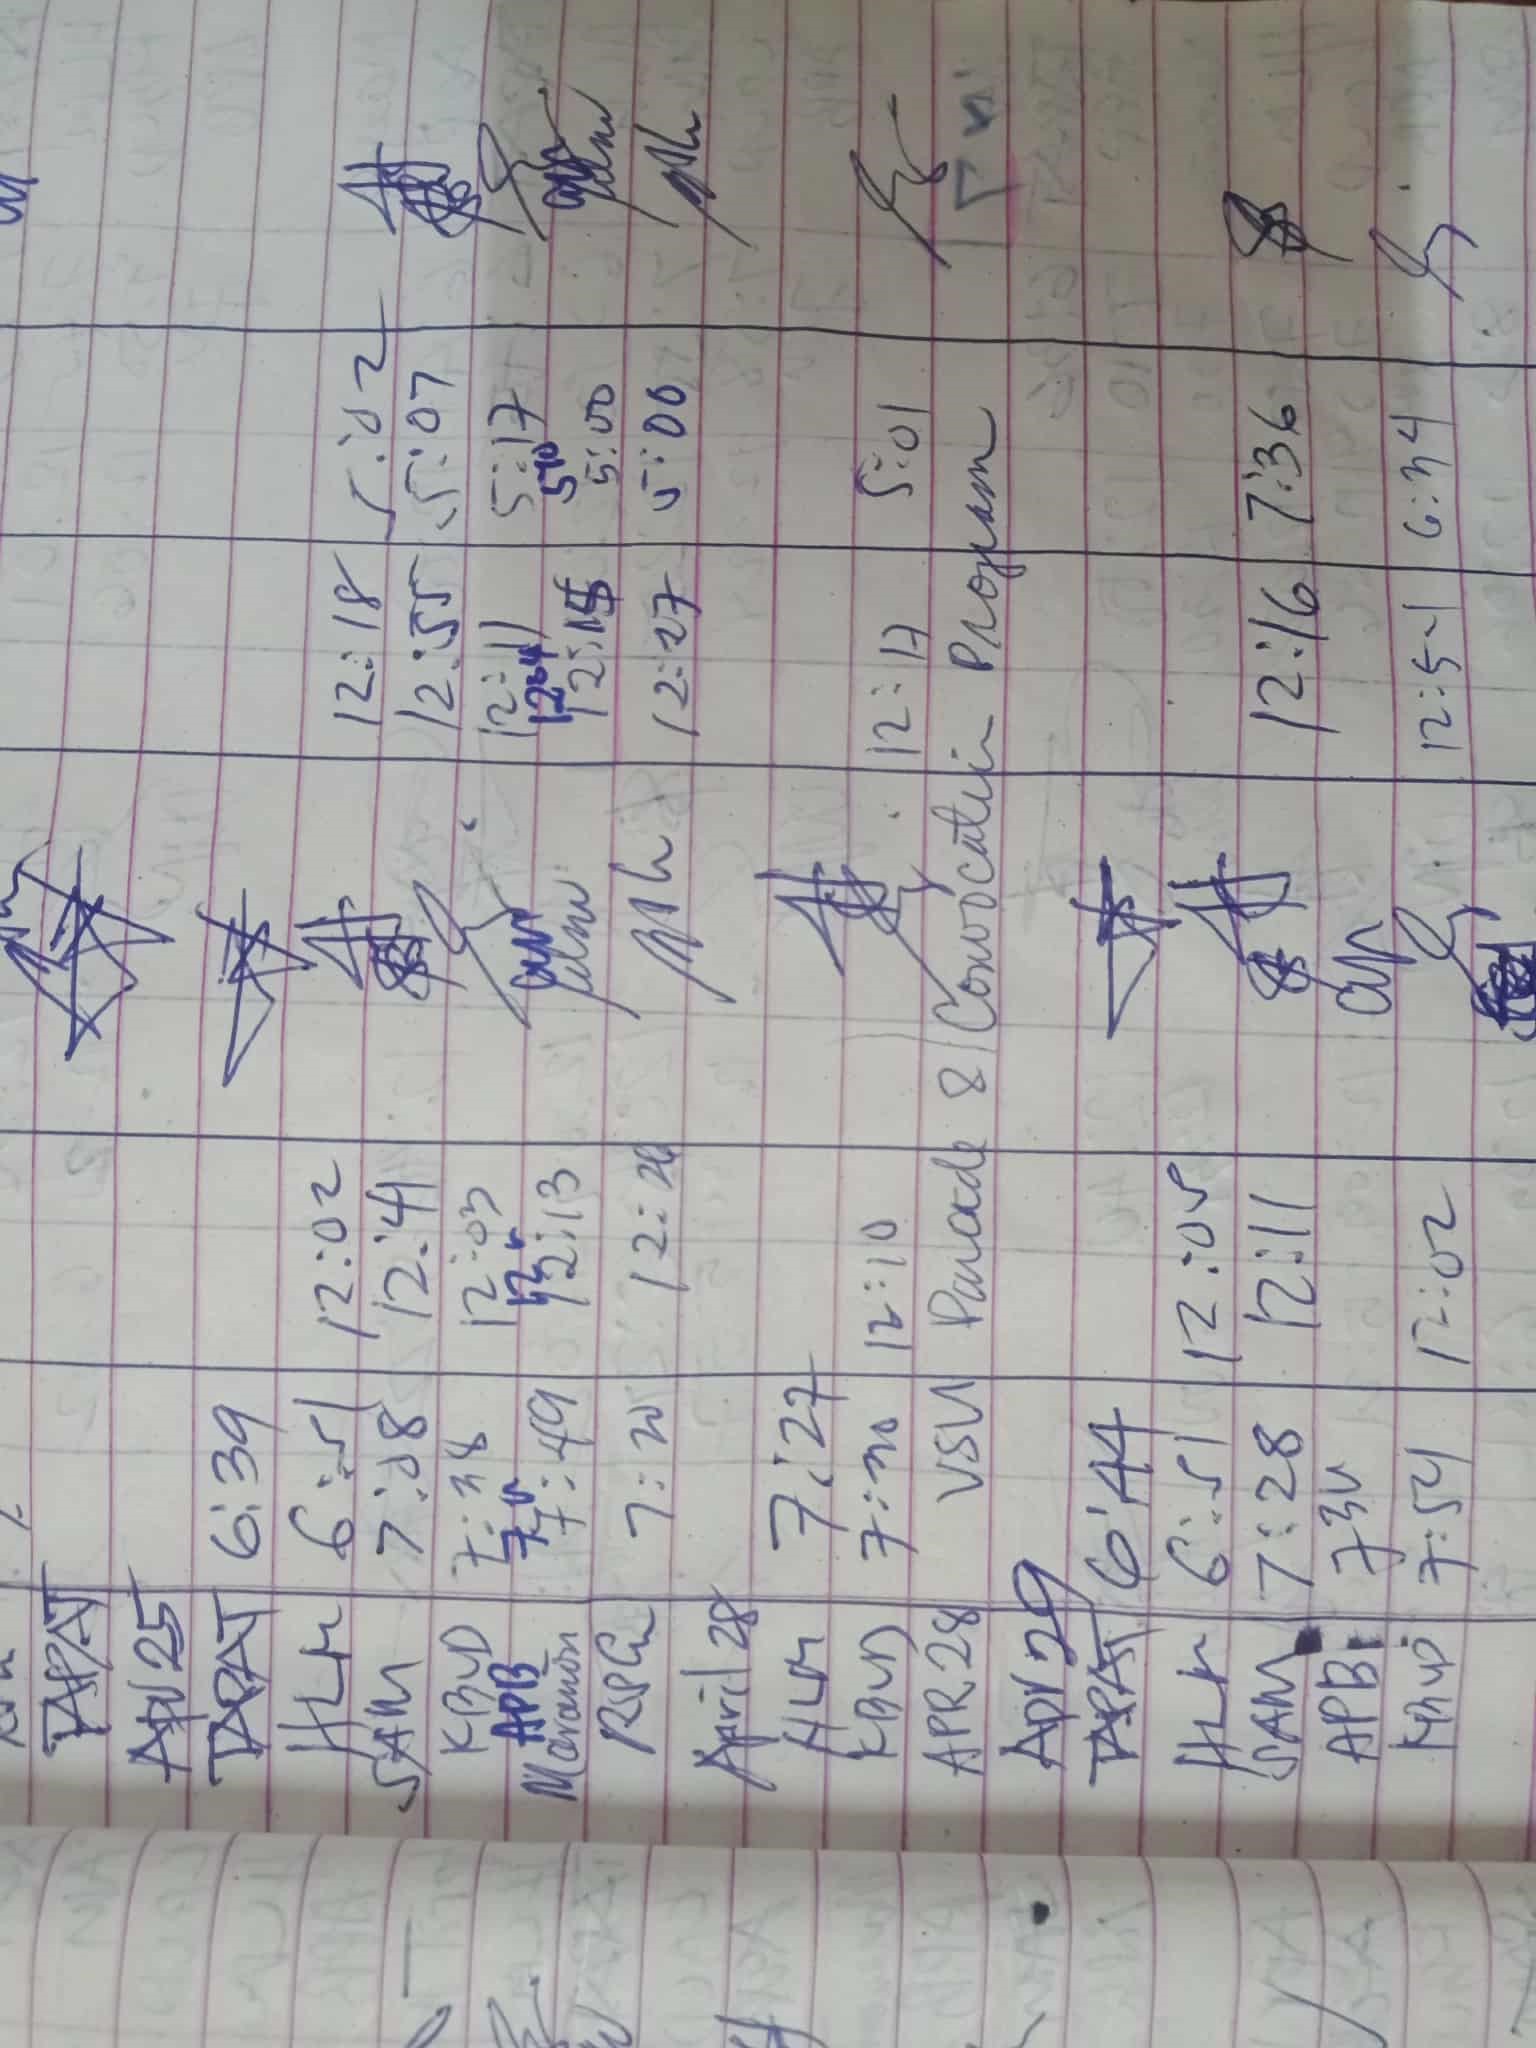 TAPAT
Apr 25
TAPAT 6:39
HLM 6:51 12:02 12:18 5:02
SAM 7:08 12:41 12:55 5:07
KBVD 7:38 12:03 12:11 5:17
APB 12:34 5:10
Maranon 7:49 12:13 12:15 5:00
12:27 5:00
April 28
HLM 7:27
KBVD 7:30 12:10 12:17 5:01
APR 28 VSU Parade & Convocation Program
Apr 29
TAPAT 6:44
HLM 6:51 12:05
SAM 7:28 12:11 12:16 7:36
APB 730
KBVD 7:54 12:02 12:51 6:34